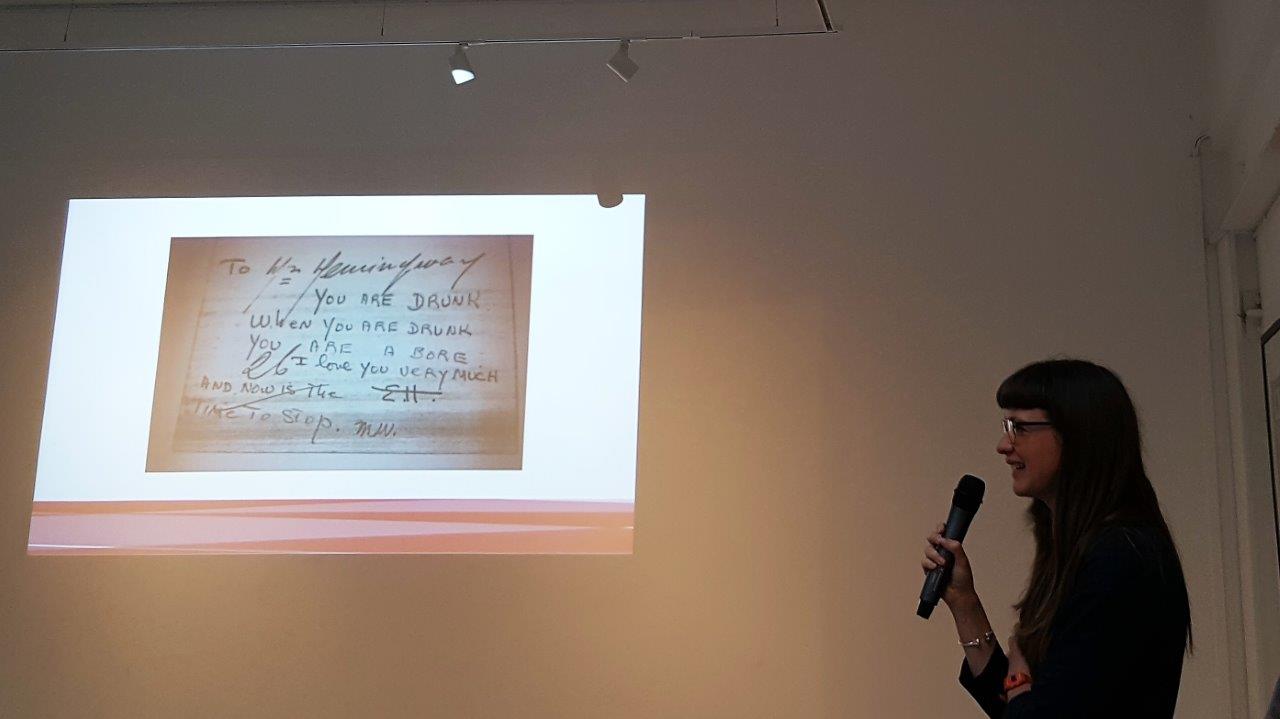 To Mr Hemingway
YOU ARE DRUNK
When YOU ARE DRUNK
YOU ARE A BORE
26 I love YOU VERY MUCH
AND NOW IS The E.H.
TIME TO STOP. M.W.